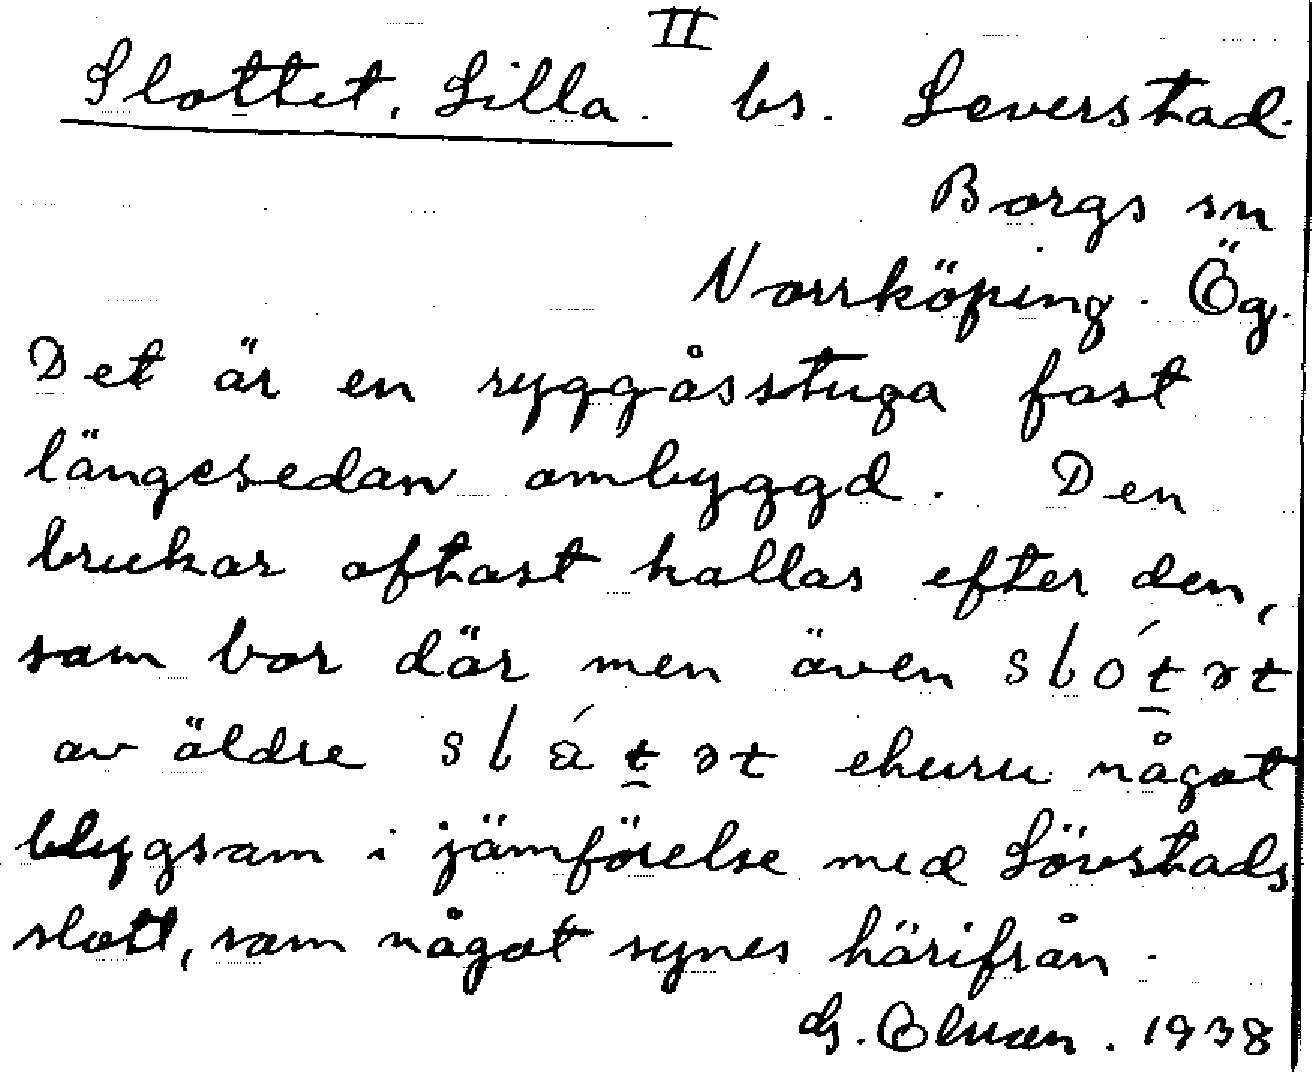 II
Slottet, Lilla. bs. Leverstad.
Borgs sn
Norrköping. Ög.
Det är en ryggåsstuga fast
längesedan ombyggd. Den
brukar oftast kallas efter den,
som bor där men även slót̲ət
av äldre slát̲ət ehuru något
blygsam i jämförelse med Lövstads
slott, som något synes härifrån.
G. 1938